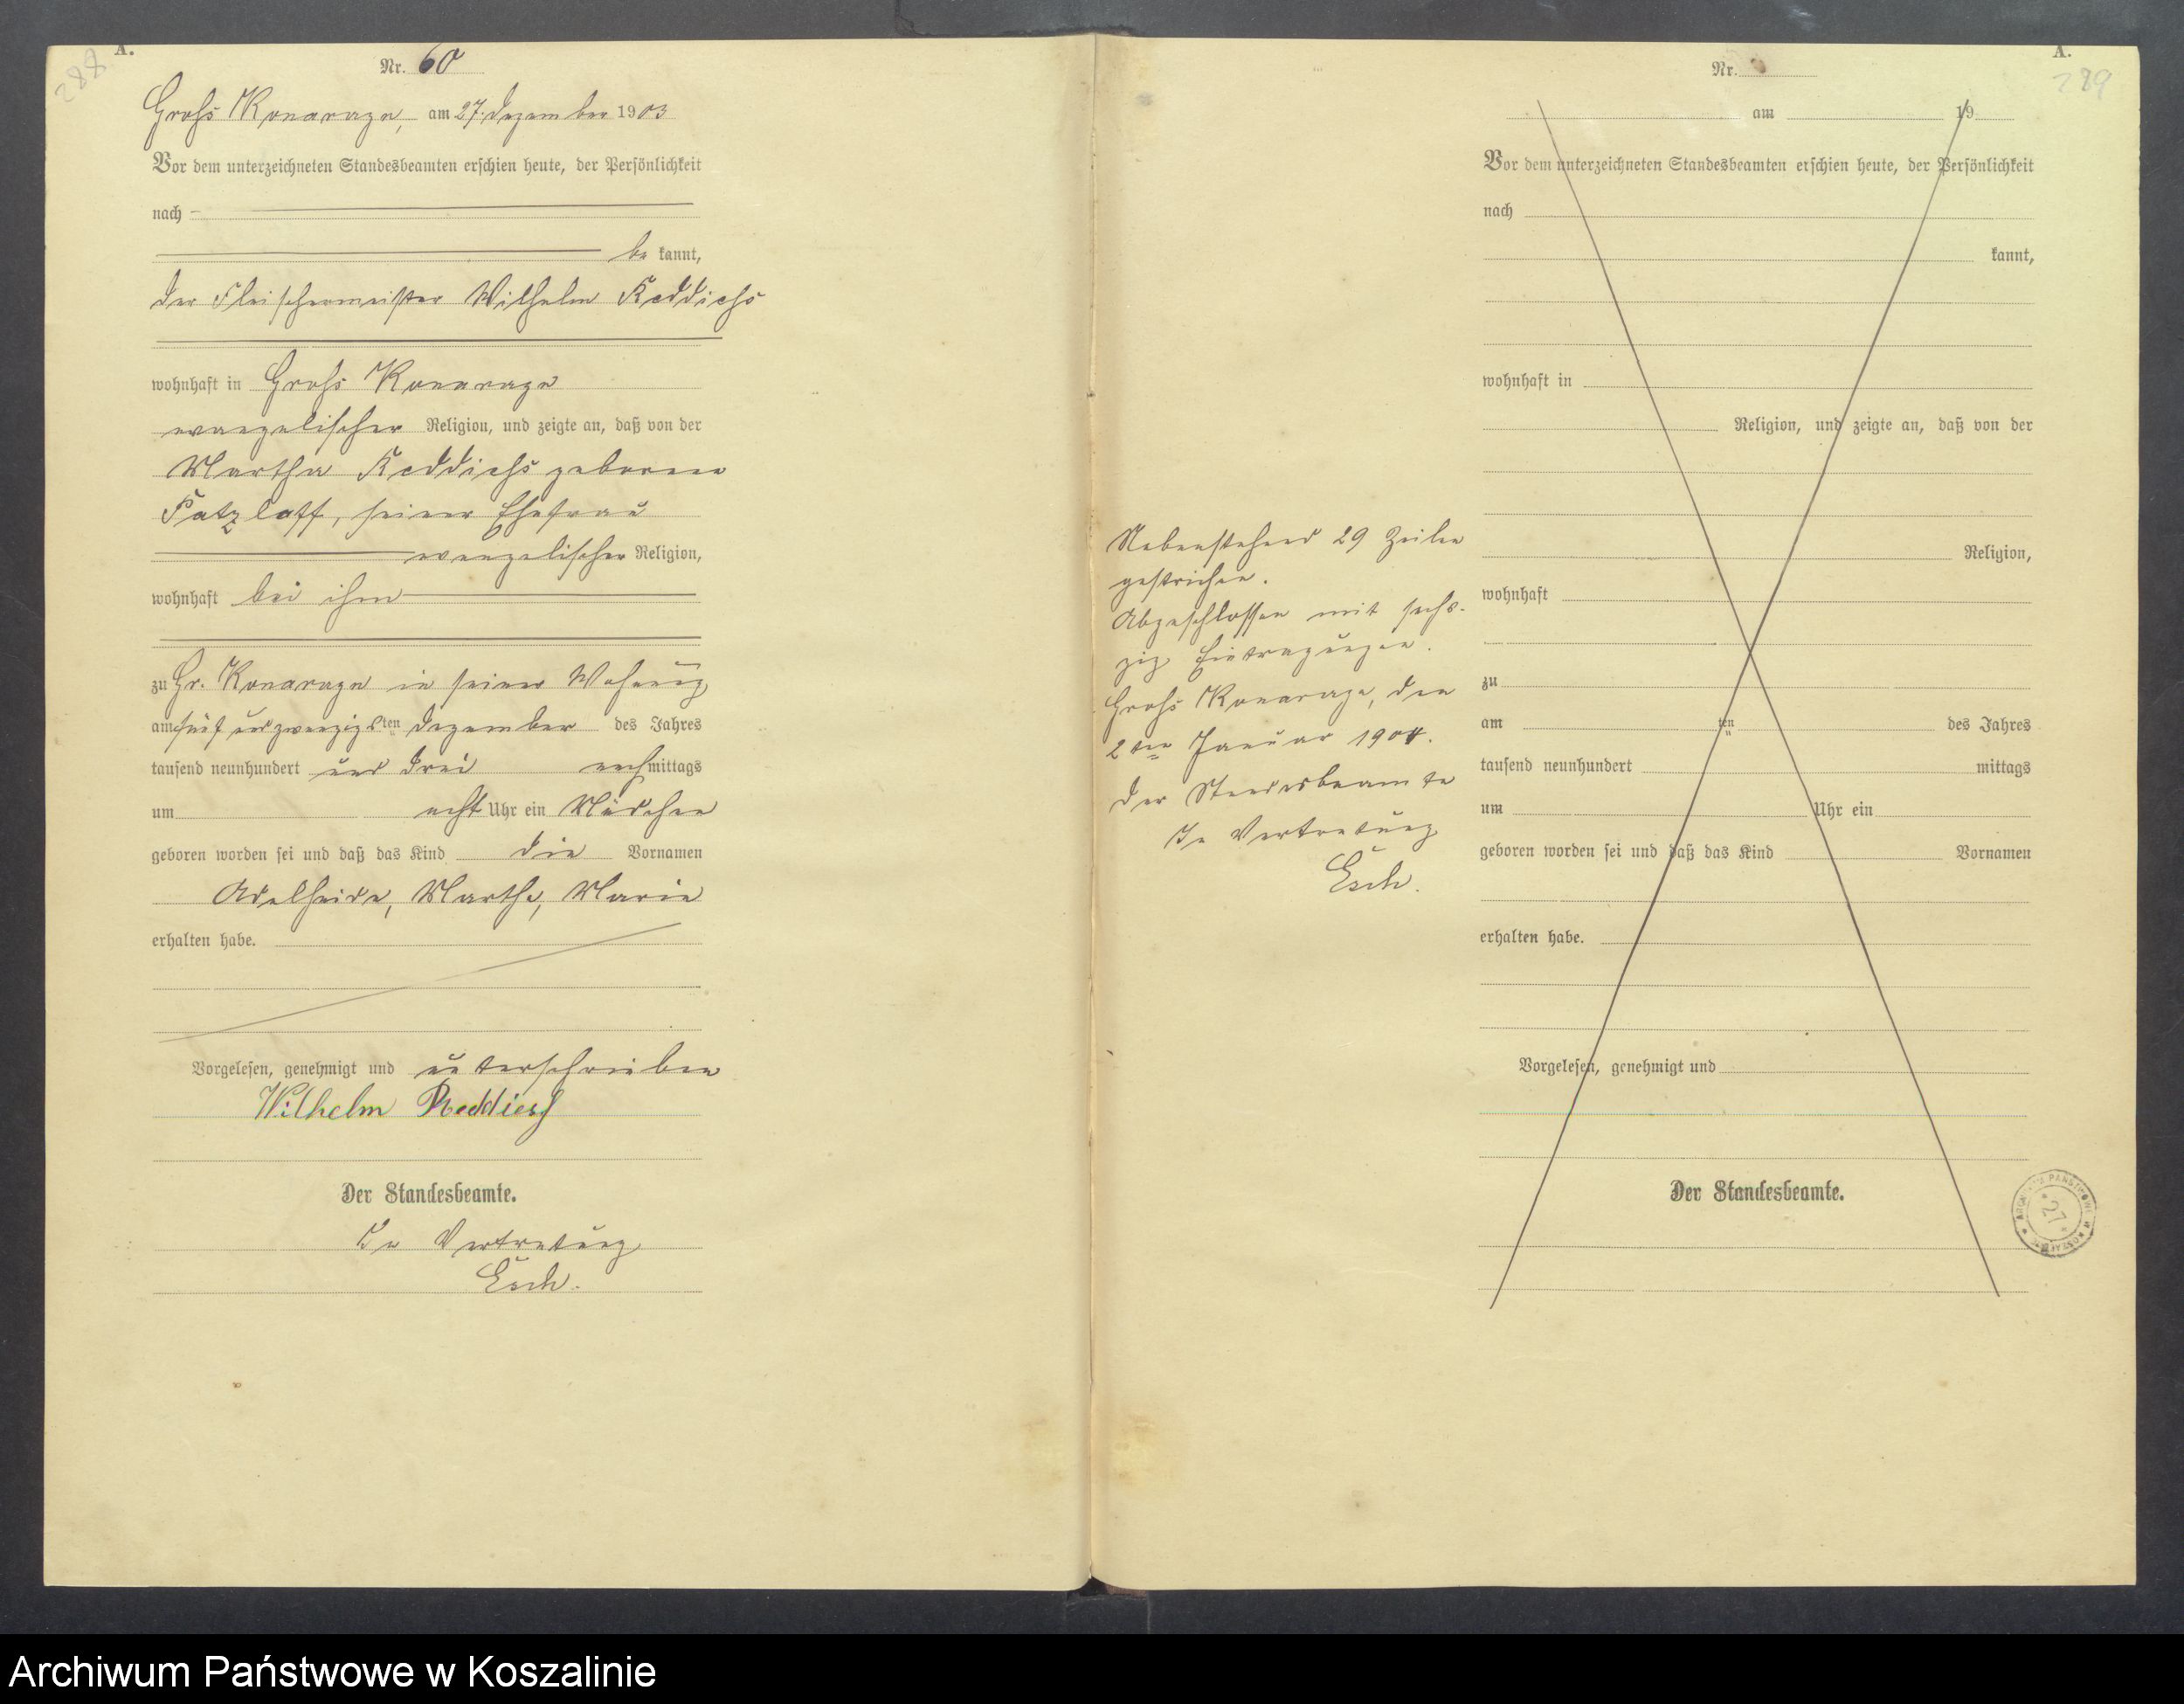 288
A.
Nr. 60
Groß Konarzyn, am 27. Dezember 1903
Vor dem unterzeichneten Standesbeamten erschien heute, der Persönlichkeit
nach
be kannt,
der Fleischermeister Wilhelm Reddieß
wohnhaft in Groß
evangelischer Religion, und zeigte an, daß von der
Martha Reddieß geborene
Patzlaff, seiner Ehefrau
evangelischer Religion,
wohnhaft bei ihm
zu Gr. in seiner Wohnung
am fünf und zwanzigsten Dezember des Jahres
tausend neunhundert und drei nachmittags
um acht Uhr ein Mädchen
geboren worden sei und daß das Kind die Vornamen
Adelheide, Martha, Marie
erhalten habe.
Vorgelesen, genehmigt und unterschrieben
Wilhelm Reddieß
Der Standesbeamte.
In Vertretung
Esch.
289
A.
Nr.
am 19
Vor dem unterzeichneten Standesbeamten erschien heute, der Persönlichkeit
nach
kannt,
wohnhaft in
Religion, und zeigte an, daß von der
Religion,
wohnhaft
zu
am ten des Jahres
tausend neunhundert mittags
um Uhr ein
geboren worden sei und daß das Kind Vornamen
erhalten habe.
Vorgelesen, genehmigt und
Der Standesbeamte.
Nebenstehend 29 Zeilen
gestrichen.
Abgeschlossen mit sech-
zig Eintragungen.
Groß den
2ten Januar 1904.
Der Standesbeamte
In Vertretung
Esch.
ARCHIWUM PAŃSTWOWE W KOSZALINIE
27
Archiwum Państwowe w Koszalinie